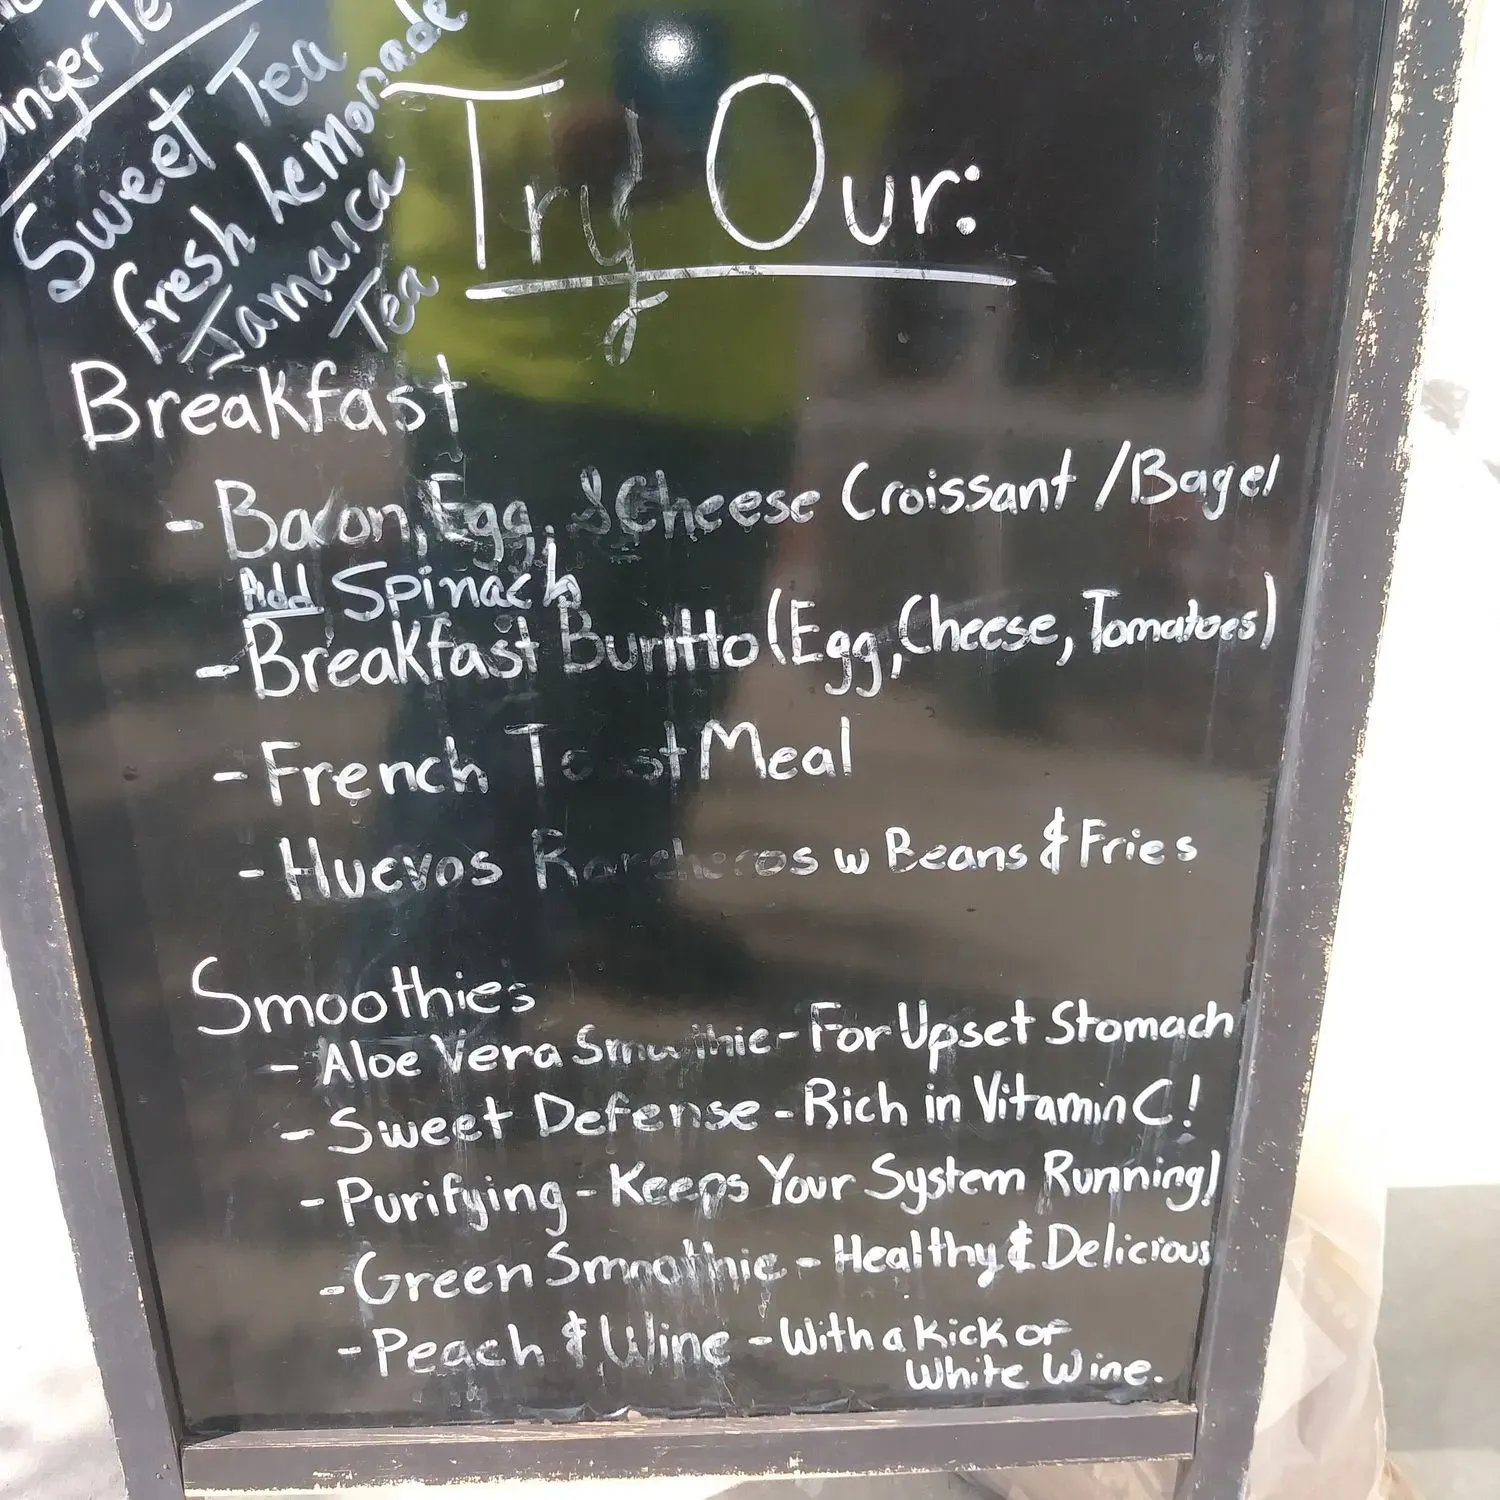 Ginger Te
Sweet Tea
Fresh Lemonade
Jamaica
Tea
Try Our:
Breakfast
- Bacon, Egg, & Cheese Croissant / Bagel
Add Spinach
- Breakfast Buritto (Egg, Cheese, Tomatoes)
- French Toast Meal
- Huevos Rancheros w Beans & Fries
Smoothies
- Aloe Vera Smoothie - For Upset Stomach
- Sweet Defense - Rich in Vitamin C!
- Purifying - Keeps Your System Running!
- Green Smoothie - Healthy & Delicious
- Peach & Wine - With a Kick of
White Wine.